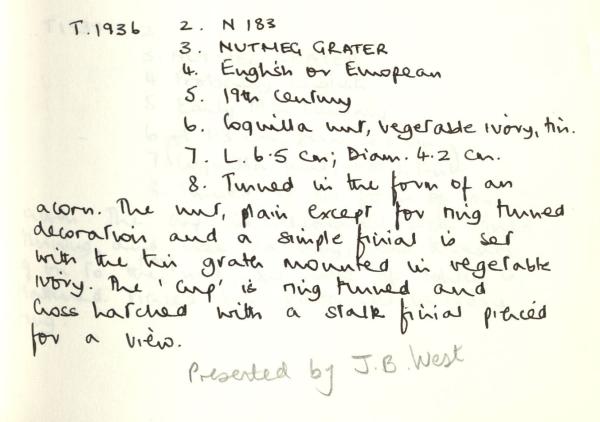 T.1936 2. N 183
3. NUTMEG GRATER
4. English or European
5. 19th Century
6. Coquilla nut, vegetable ivory, tin.
7. L. 6.5 cm; Diam. 4.2 cm.
8. Turned in the form of an
acorn. The nut, plain except for ring turned
decoration and a simple finial is set
with the tin grater mounted in vegetable
ivory. The 'cup' is ring turned and
cross hatched with a stalk finial pierced
for a view.
Presented by J.B. West